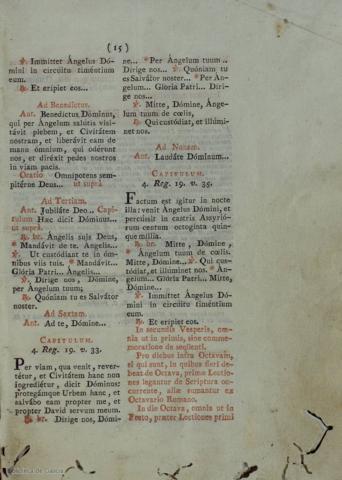 (15)
℣. Immittet Ángelus Dó-
mini in circuitu timéntium
eum.
℟. Et eripiet eos...
Ad Benedictus.
Ant. Benedíctus Dóminus,
qui per Angelum salútis visi-
távit plebem, et Civitátem
nostram, et liberávit eam de
manu ómnium, qui odérunt
nos, et diréxit pedes nostros
in viam pacis.
Oratio Omnipotens sem-
pitérne Deus... ut supra
Ad Tertiam.
Ant. Jubiláte Deo... Capí-
tulum Hæc dicit Dóminus...
ut supra.
℟. br. Ángelis sujs Deus,
* Mandávit de te. Angelis...
℣. Ut custódiant te in óm-
nibus viis tuis. * Mandávit...
Glória Patri... Ángelis...
℣. Dirige nos, Dómine,
per Ángelum tuum;
℟. Quóniam tu es Salvátor
noster.
Ad Sextam.
Ant. Ad te, Dómine...
CAPITULUM.
4. Reg. 19. v. 33.
Per viam, qua venit, rever-
tétur, et Civitátem hanc non
ingrediétur, dicit Dóminus:
protegámque Urbem hanc, et
salvábo eam propter me, et
propter David servum meum.
℟. br. Dirige nos, Dómi-
ne... * Per Ángelum tuum..
Dirige nos... ℣. Quóniam tu
es Salvátor noster... * Per Án-
gelum... Glória Patri... Diri-
ge nos...
℣. Mitte, Dómine, Ánge-
lum tuum de cœlis,
℟. Qui custódiat, et illúmi-
net nos.
Ad Nonam.
Ant. Laudáte Dóminum...
CAPITULUM.
4. Reg. 19. v. 35.
Factum est ígitur in nocte
illa: venit Ángelus Dómini, et
percússit in castris Assyrió-
rum centum octoginta quin-
que míllia.
℟. br. Mitte, Dómine,
* Ángelum tuum de cœlis.
Mitte, Dómine... ℣. Qui cus-
tódiat, et illúminet nos. * Án-
gelum... Glória Patri... Mitte,
Dómine...
℣. Immittet Ángelus Dó-
mini in circúitu timéntium
eum.
℟. Et erípiet eos.
In secundis Vesperis, om-
nia ut in primis, sine comme-
moratione de seqüenti.
Pro diebus infra Octavam,
si qui sunt, in quibus fieri de-
beat de Octava, primæ Lectio-
nes legantur de Scriptura oc-
currente, aliæ sumantur ex
Octavario Romano.
In die Octava, omnia ut in
Festo, præter Lectiones primi
Biblioteca de Galicia